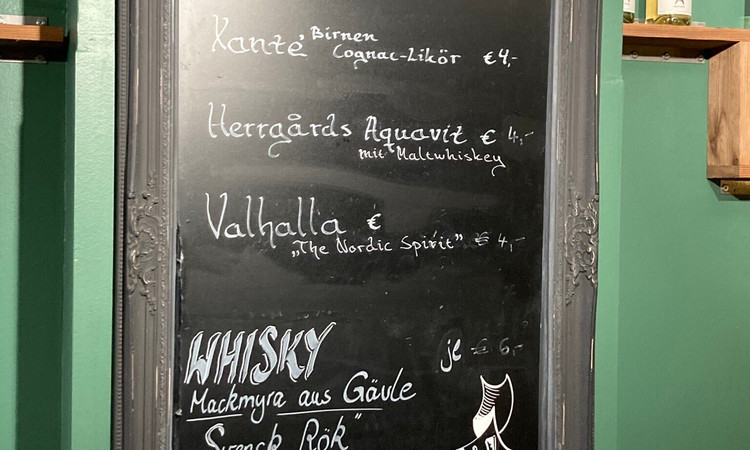 Xanté Birnen
Cognac-Likör €4,-
Herrgårds Aquavit € 4,-
mit Maltwhiskey
Valhalla €
„The Nordic Spirit” € 4,-
WHISKY je € 6,-
Mackmyra aus Gävle
Svensk Rök"